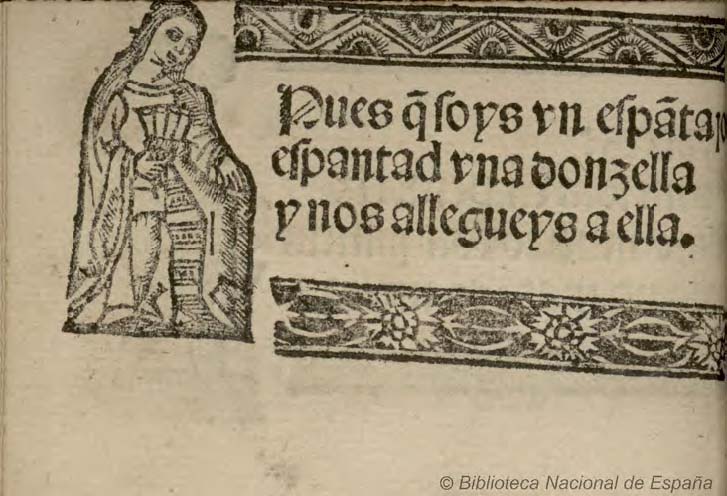 Pues q̃ soys vn espãtap
espantad vna donzella
y nos allegueys a ella.
© Biblioteca Nacional de España